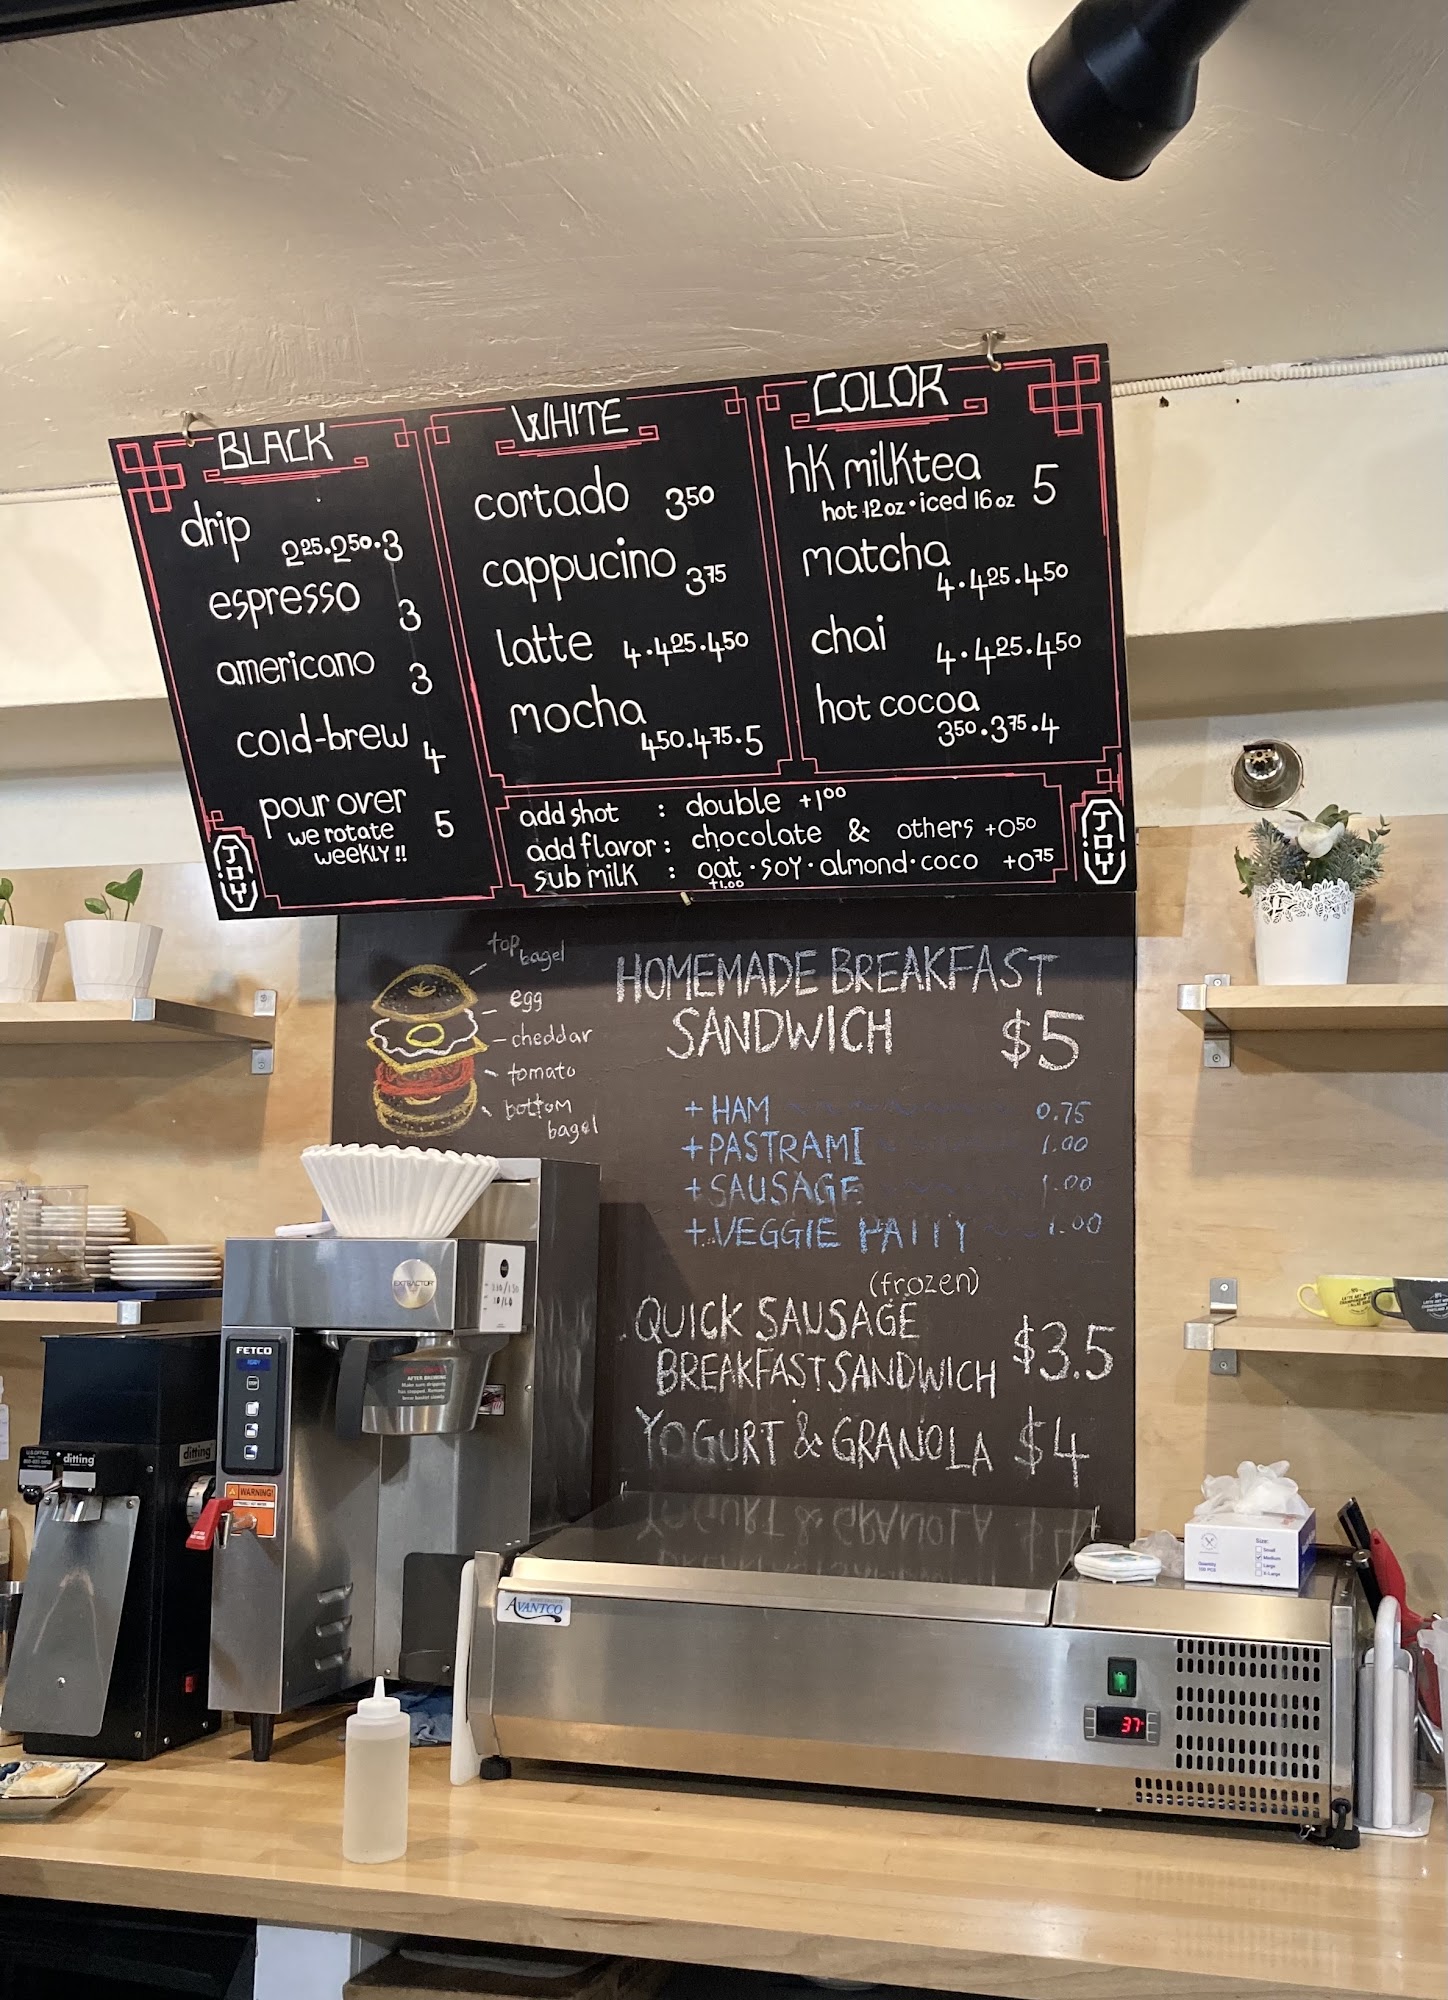 BLACK
drip
2.25 · 2.50 · 3
espresso 3
americano 3
cold-brew 4
pour over 5
we rotate
weekly !!
WHITE
cortado 3.50
cappucino 3.75
latte 4 · 4.25 · 4.50
mocha
4.50 · 4.75 · 5
COLOR
hk milktea 5
hot 12 oz · iced 16 oz
matcha
4 · 4.25 · 4.50
chai
4 · 4.25 · 4.50
hot cocoa
3.50 · 3.75 · 4
add shot : double +1.00
add flavor : chocolate & others +0.50
sub milk : oat · soy · almond · coco +0.75
+1.00
JOY
JOY
top bagel
egg
cheddar
tomato
bottom
bagel
HOMEMADE BREAKFAST
SANDWICH $5
+ HAM 0.75
+ PASTRAMI 1.00
+ SAUSAGE 1.00
+ VEGGIE PATTY 1.00
(frozen)
QUICK SAUSAGE
BREAKFAST SANDWICH $3.5
YOGURT & GRANOLA $4
EXTRACTOR
FETCO
AFTER BREWING
WARNING!
ditting
ditting
AVANTCO
37
Size:
Small
Medium
Large
X-Large